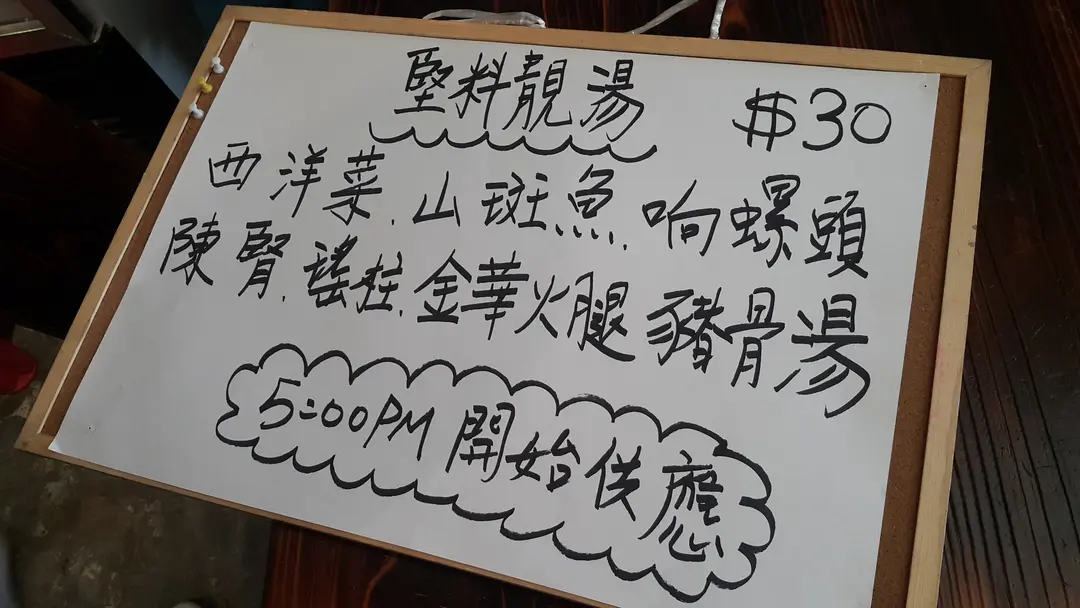 堅料靚湯 $30
西洋菜.山斑魚.响螺頭
陳腎.瑤柱.金華火腿豬骨湯
5:00PM開始供應